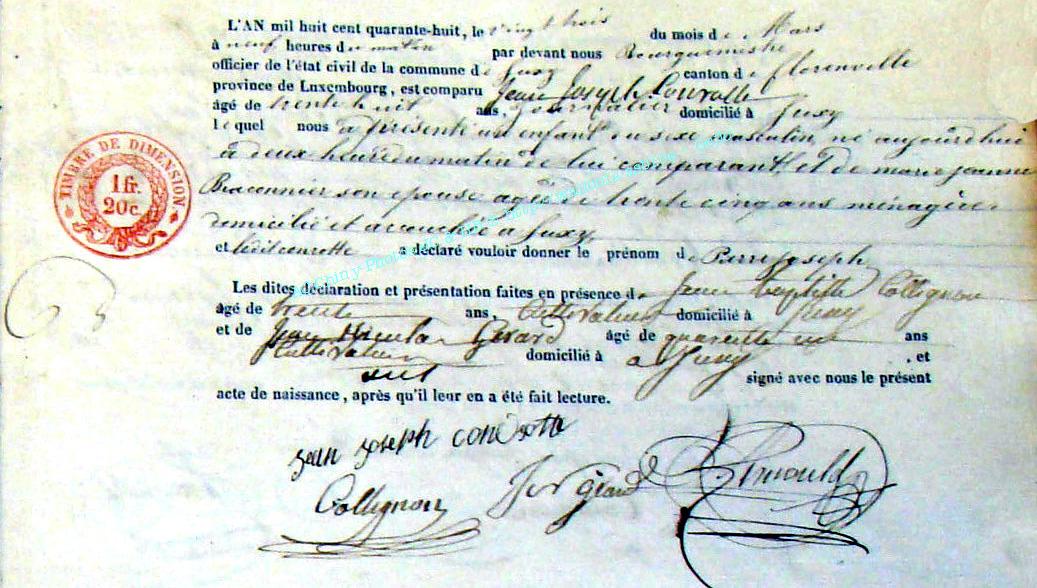 L'AN mil huit cent quarante-huit, le vingt trois du mois de Mars
à neuf heures du matin par devant nous Bourguemestre
officier de l'état civil de la commune de Suxy canton de florenville
province de Luxembourg, est comparu Jean Joseph
âgé de trente huit ans, journalier domicilié à Suxy
lequel nous a présenté un enfant du sexe masculin, né aujourdhui
à deux heure du matin de lui comparant, et de marie jeanne
Braconnier son epouse agée de trente cinq ans ménagère
domicilié et accouchée à Suxy
et ledit conrotte a déclaré vouloir donner le prénom de Pierre Joseph
Les dites déclaration et présentation faites en présence de Jean baptiste Collignon
âgé de trente ans, Cultivateur domicilié à Suxy
et de Jean Nicolas Gérard âgé de quarante un ans
Cultivateur domicilié à a Suxy, et
ont signé avec nous le présent
acte de naissance, après qu'il leur en a été fait lecture.
TIMBRE DE DIMENSION
1 fr.
20 c.
jean joseph conrotte
Collignon
Gérard